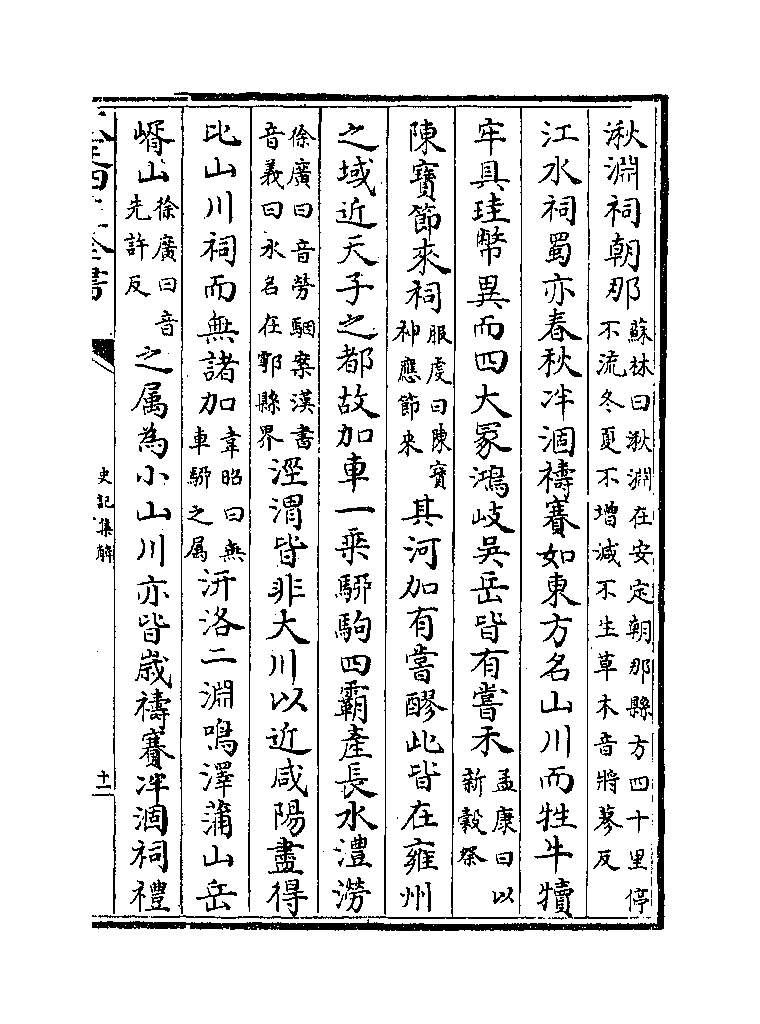 湫淵祠朝那蘇林曰湫淵在安定朝那縣方四十里停不流冬夏不增減不生草木音將蓼反
江水祠蜀亦春秋泮涸禱賽如東方名山川而牲牛犢
牢具珪幣異而四大冢鴻岐吳岳皆有嘗禾孟康曰以新穀祭
陳寶節來祠服虔曰陳寶神應節來其河加有嘗醪此皆在雍州
之域近天子之都故加車一乘駵駒四霸產長水澧澇
徐廣曰音勞駰案漢書音義曰水名在鄠縣界涇渭皆非大川以近咸陽盡得
比山川祠而無諸加韋昭曰無車駵之屬汧洛二淵鳴澤蒲山岳
㟯山徐廣曰音先許反之屬為小山川亦皆嵗禱賽泮涸祠禮
史記集解
十二